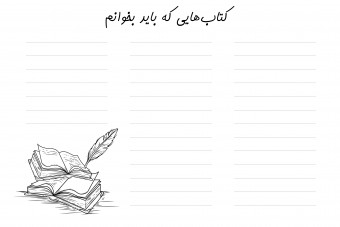 کتاب‌هایی که باید بخوانم